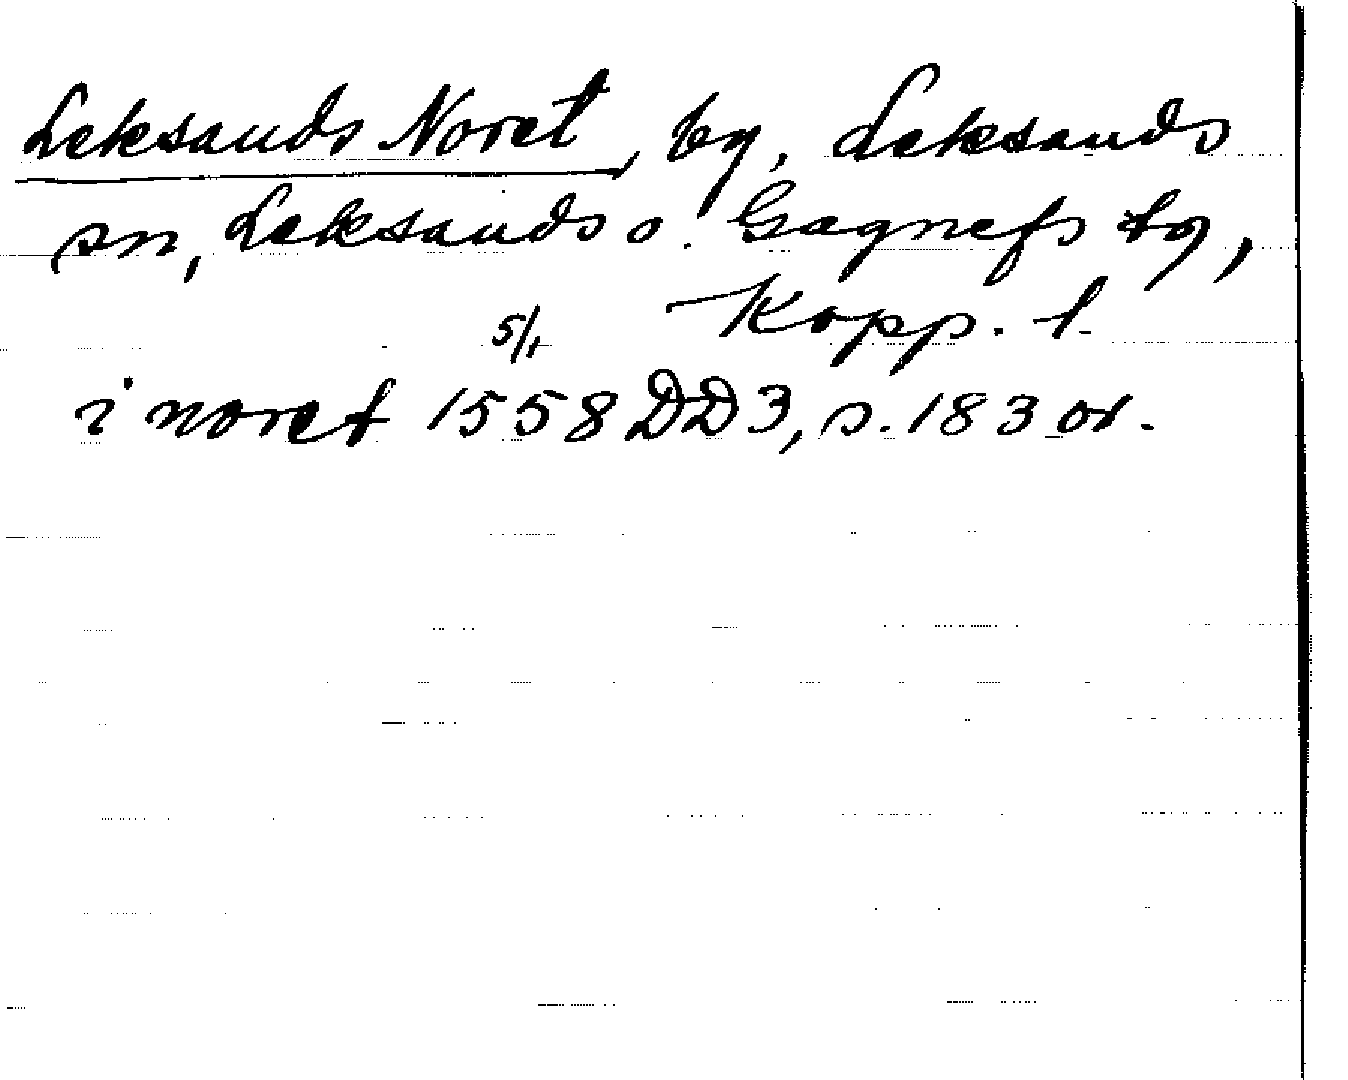 Leksands Noret, by, Leksands
sn, Leksands o. Gagnefs tg,
Kopp. l.
5/1
i noret 1558 DD3, s. 183 or.